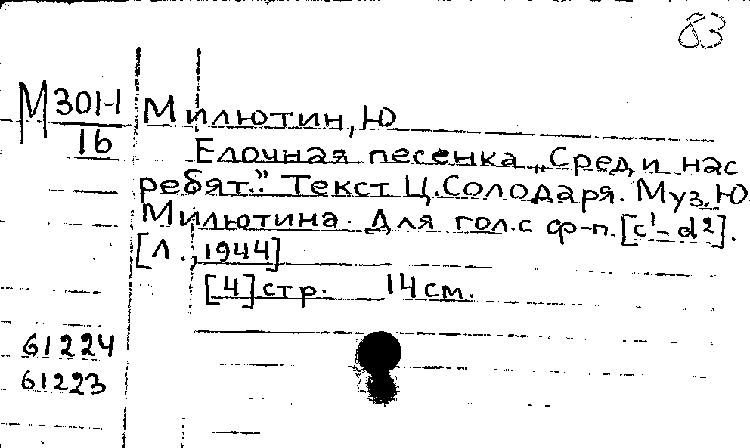 83
М 301-1
16
Милютин, Ю
Елочная песенка „Сред, и нас
ребят." Текст Ц. Солодаря. Муз. Ю
Милютина. Для гол. с ф-п. [c¹-d²].
[Л., 1944]
[4] стр. 14 см.
61224
61223